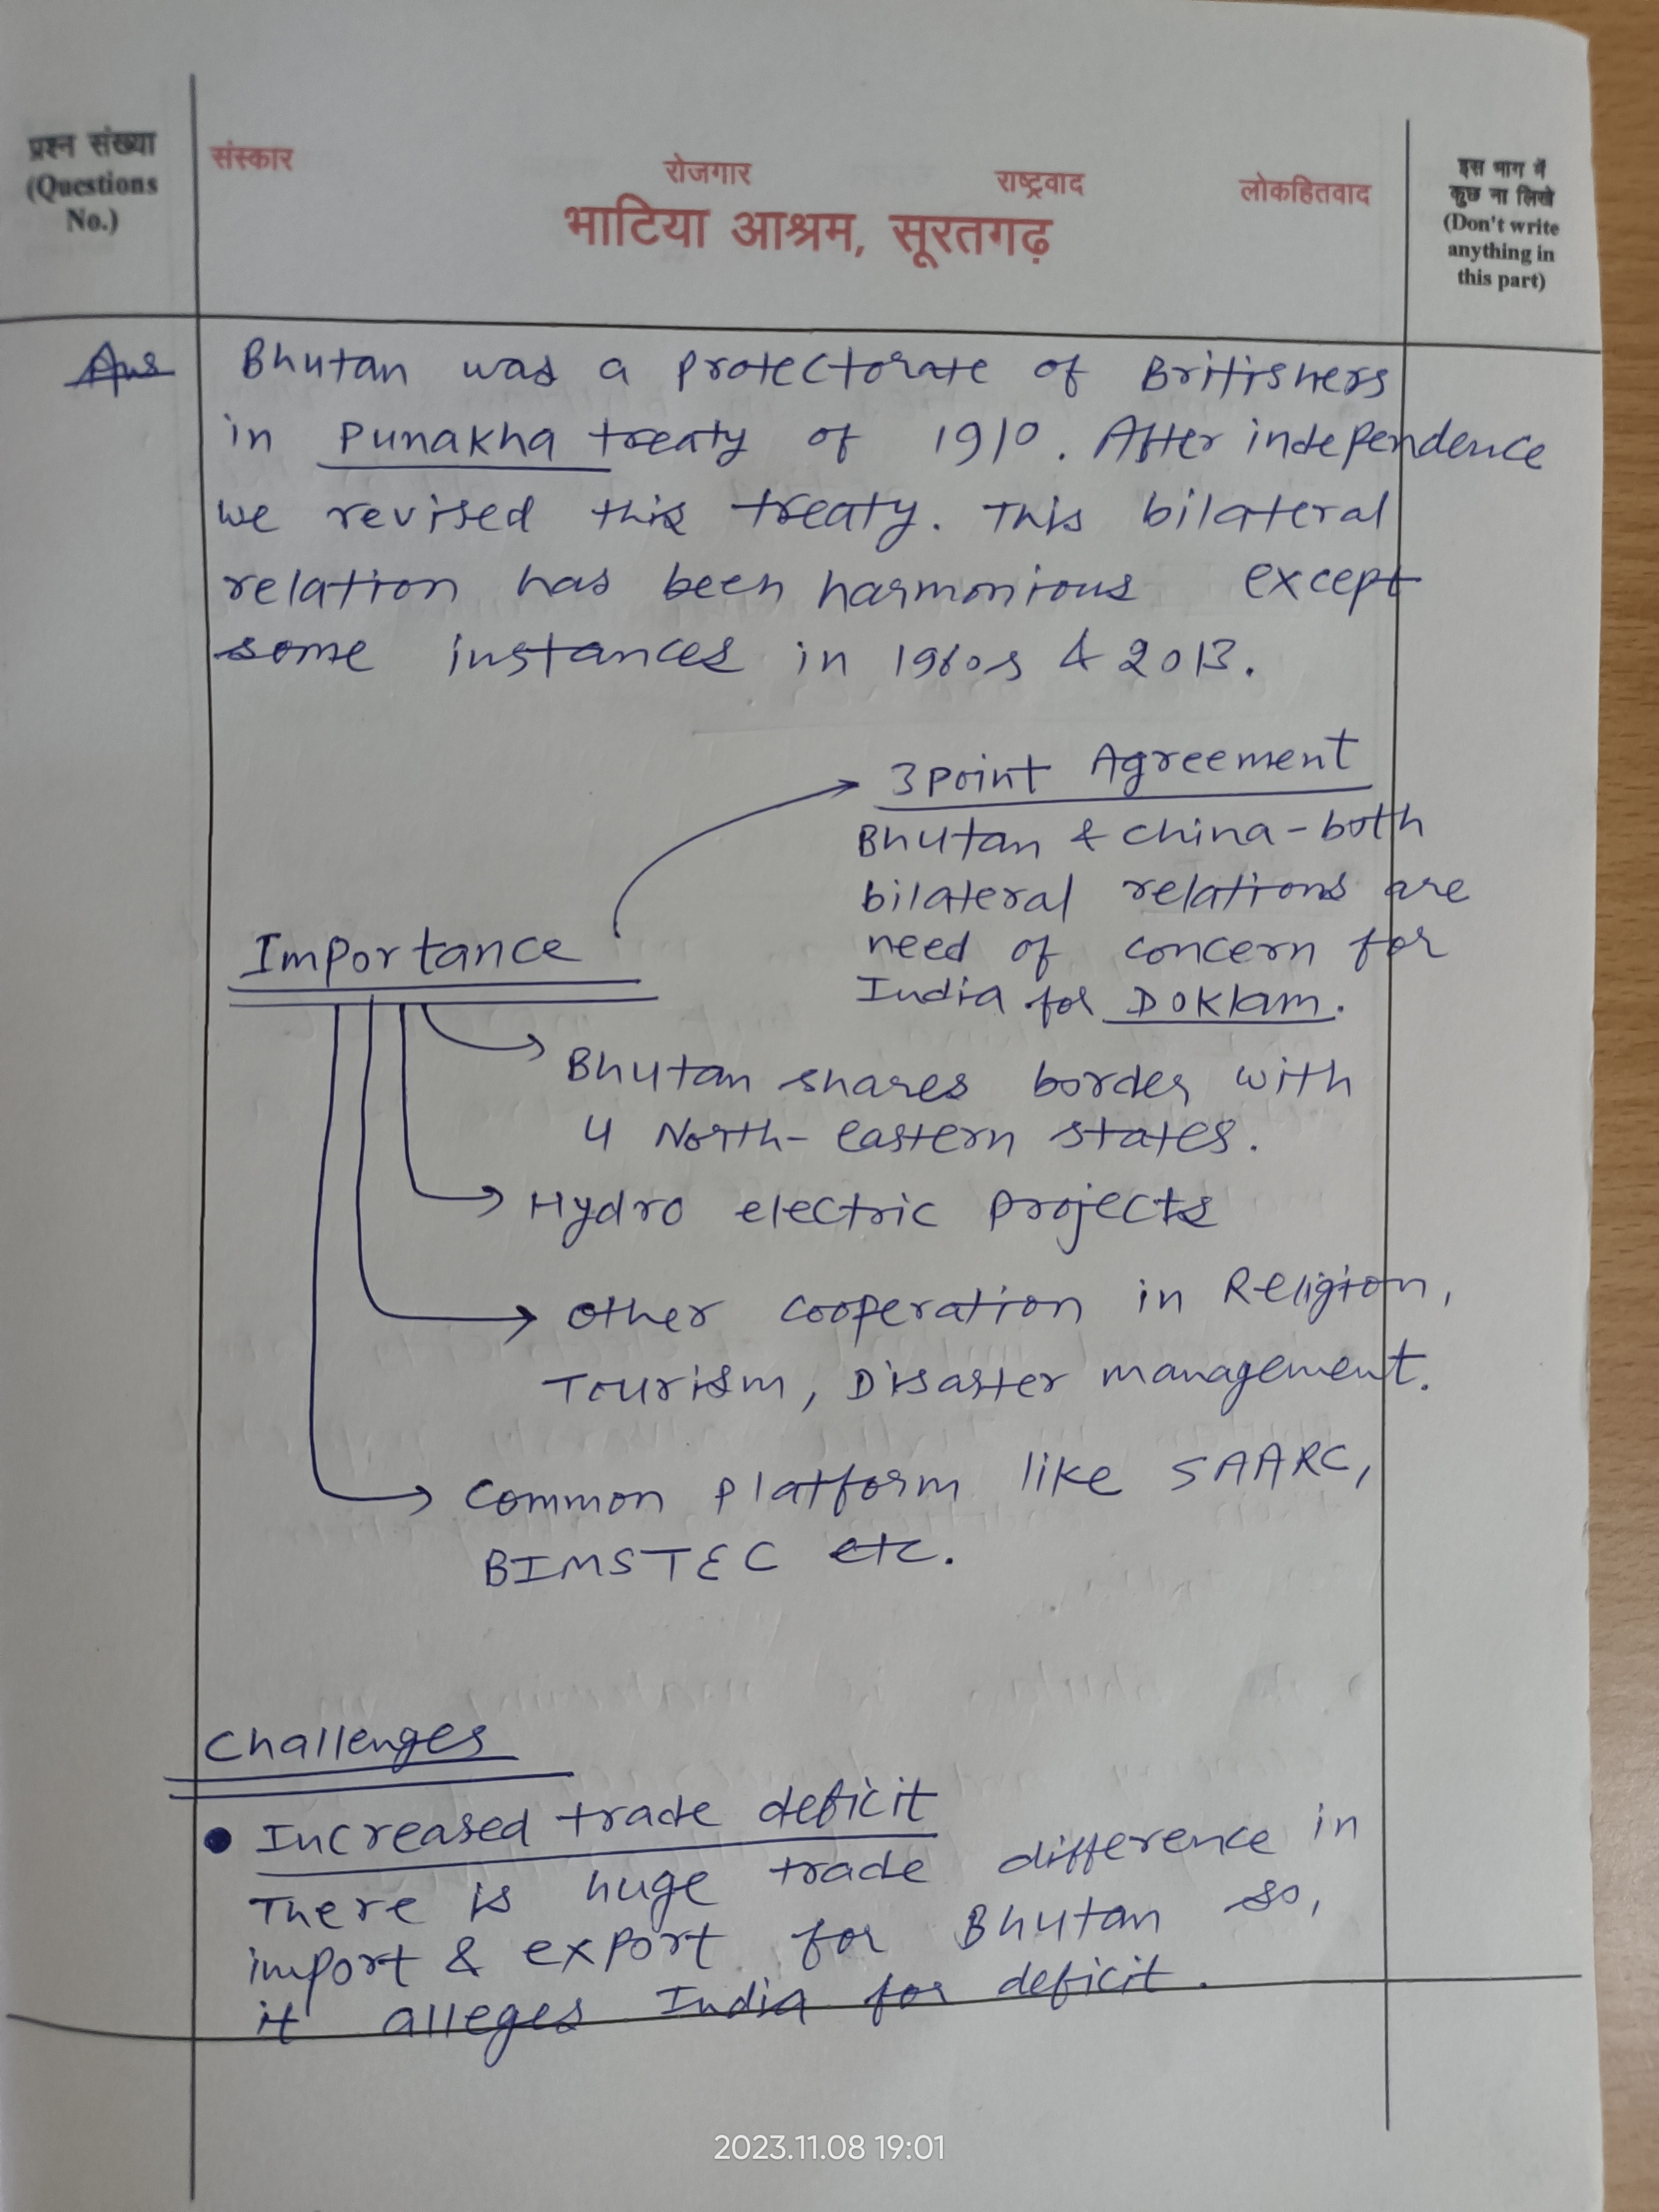 प्रश्न संख्या
(Questions
No.)
संस्कार
रोजगार
राष्ट्रवाद
लोकहितवाद
भाटिया आश्रम, सूरतगढ़
इस भाग में
कुछ ना लिखे
(Don't write
anything in
this part)
Ans
Bhutan was a protectorate of Britishers
in Punakha treaty of 1910. After independence
we revised this treaty. This bilateral
relation has been harmonious except
some instances in 1960s & 2013.
3 point Agreement
Bhutan & china - both
bilateral relations are
need of concern for
India for Doklam.
Importance
Bhutan shares border with
4 North-eastern states.
Hydro electric projects
other cooperation in Religion,
Tourism, Disaster management.
Common platform like SAARC,
BIMSTEC etc.
Challenges
• Increased trade deficit
There is huge trade difference in
import & export for Bhutan so,
it alleges India for deficit.
2023.11.08 19:01